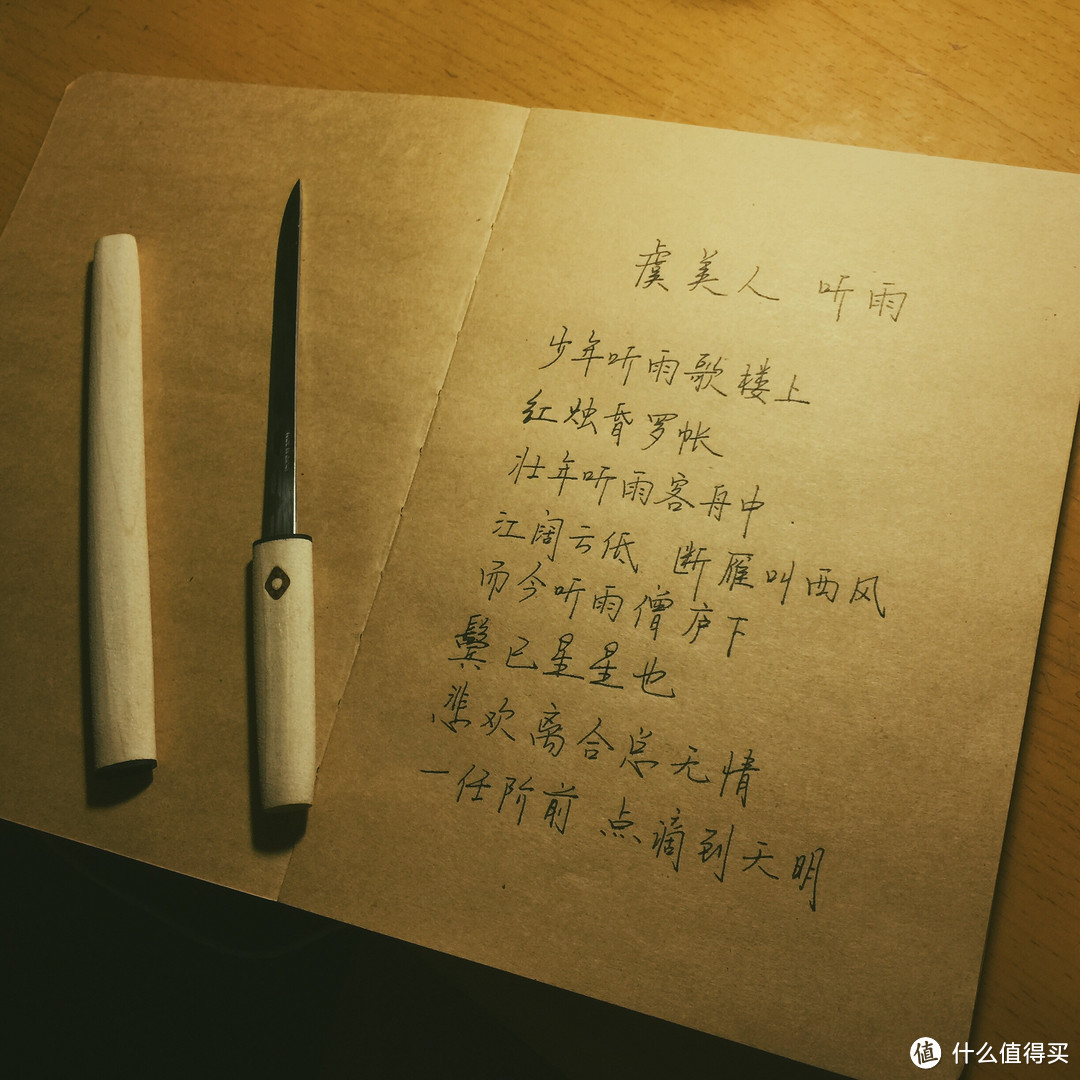 虞美人 听雨
少年听雨歌楼上
红烛昏罗帐
壮年听雨客舟中
江阔云低 断雁叫西风
而今听雨僧庐下
鬓已星星也
悲欢离合总无情
一任阶前 点滴到天明
值 什么值得买